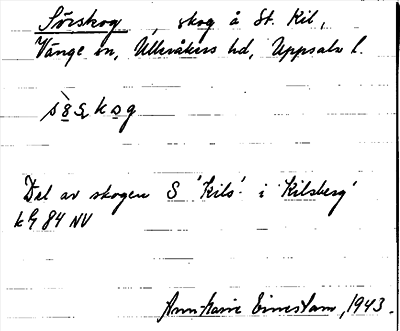 Sörskog, skog å St. Kil,
Vänge sn, Ulleråkers hd, Uppsala l.
Del av skogen S 'Kils' i 'Kilsberg'
kG 84 NV
Ann-Marie, 1943.